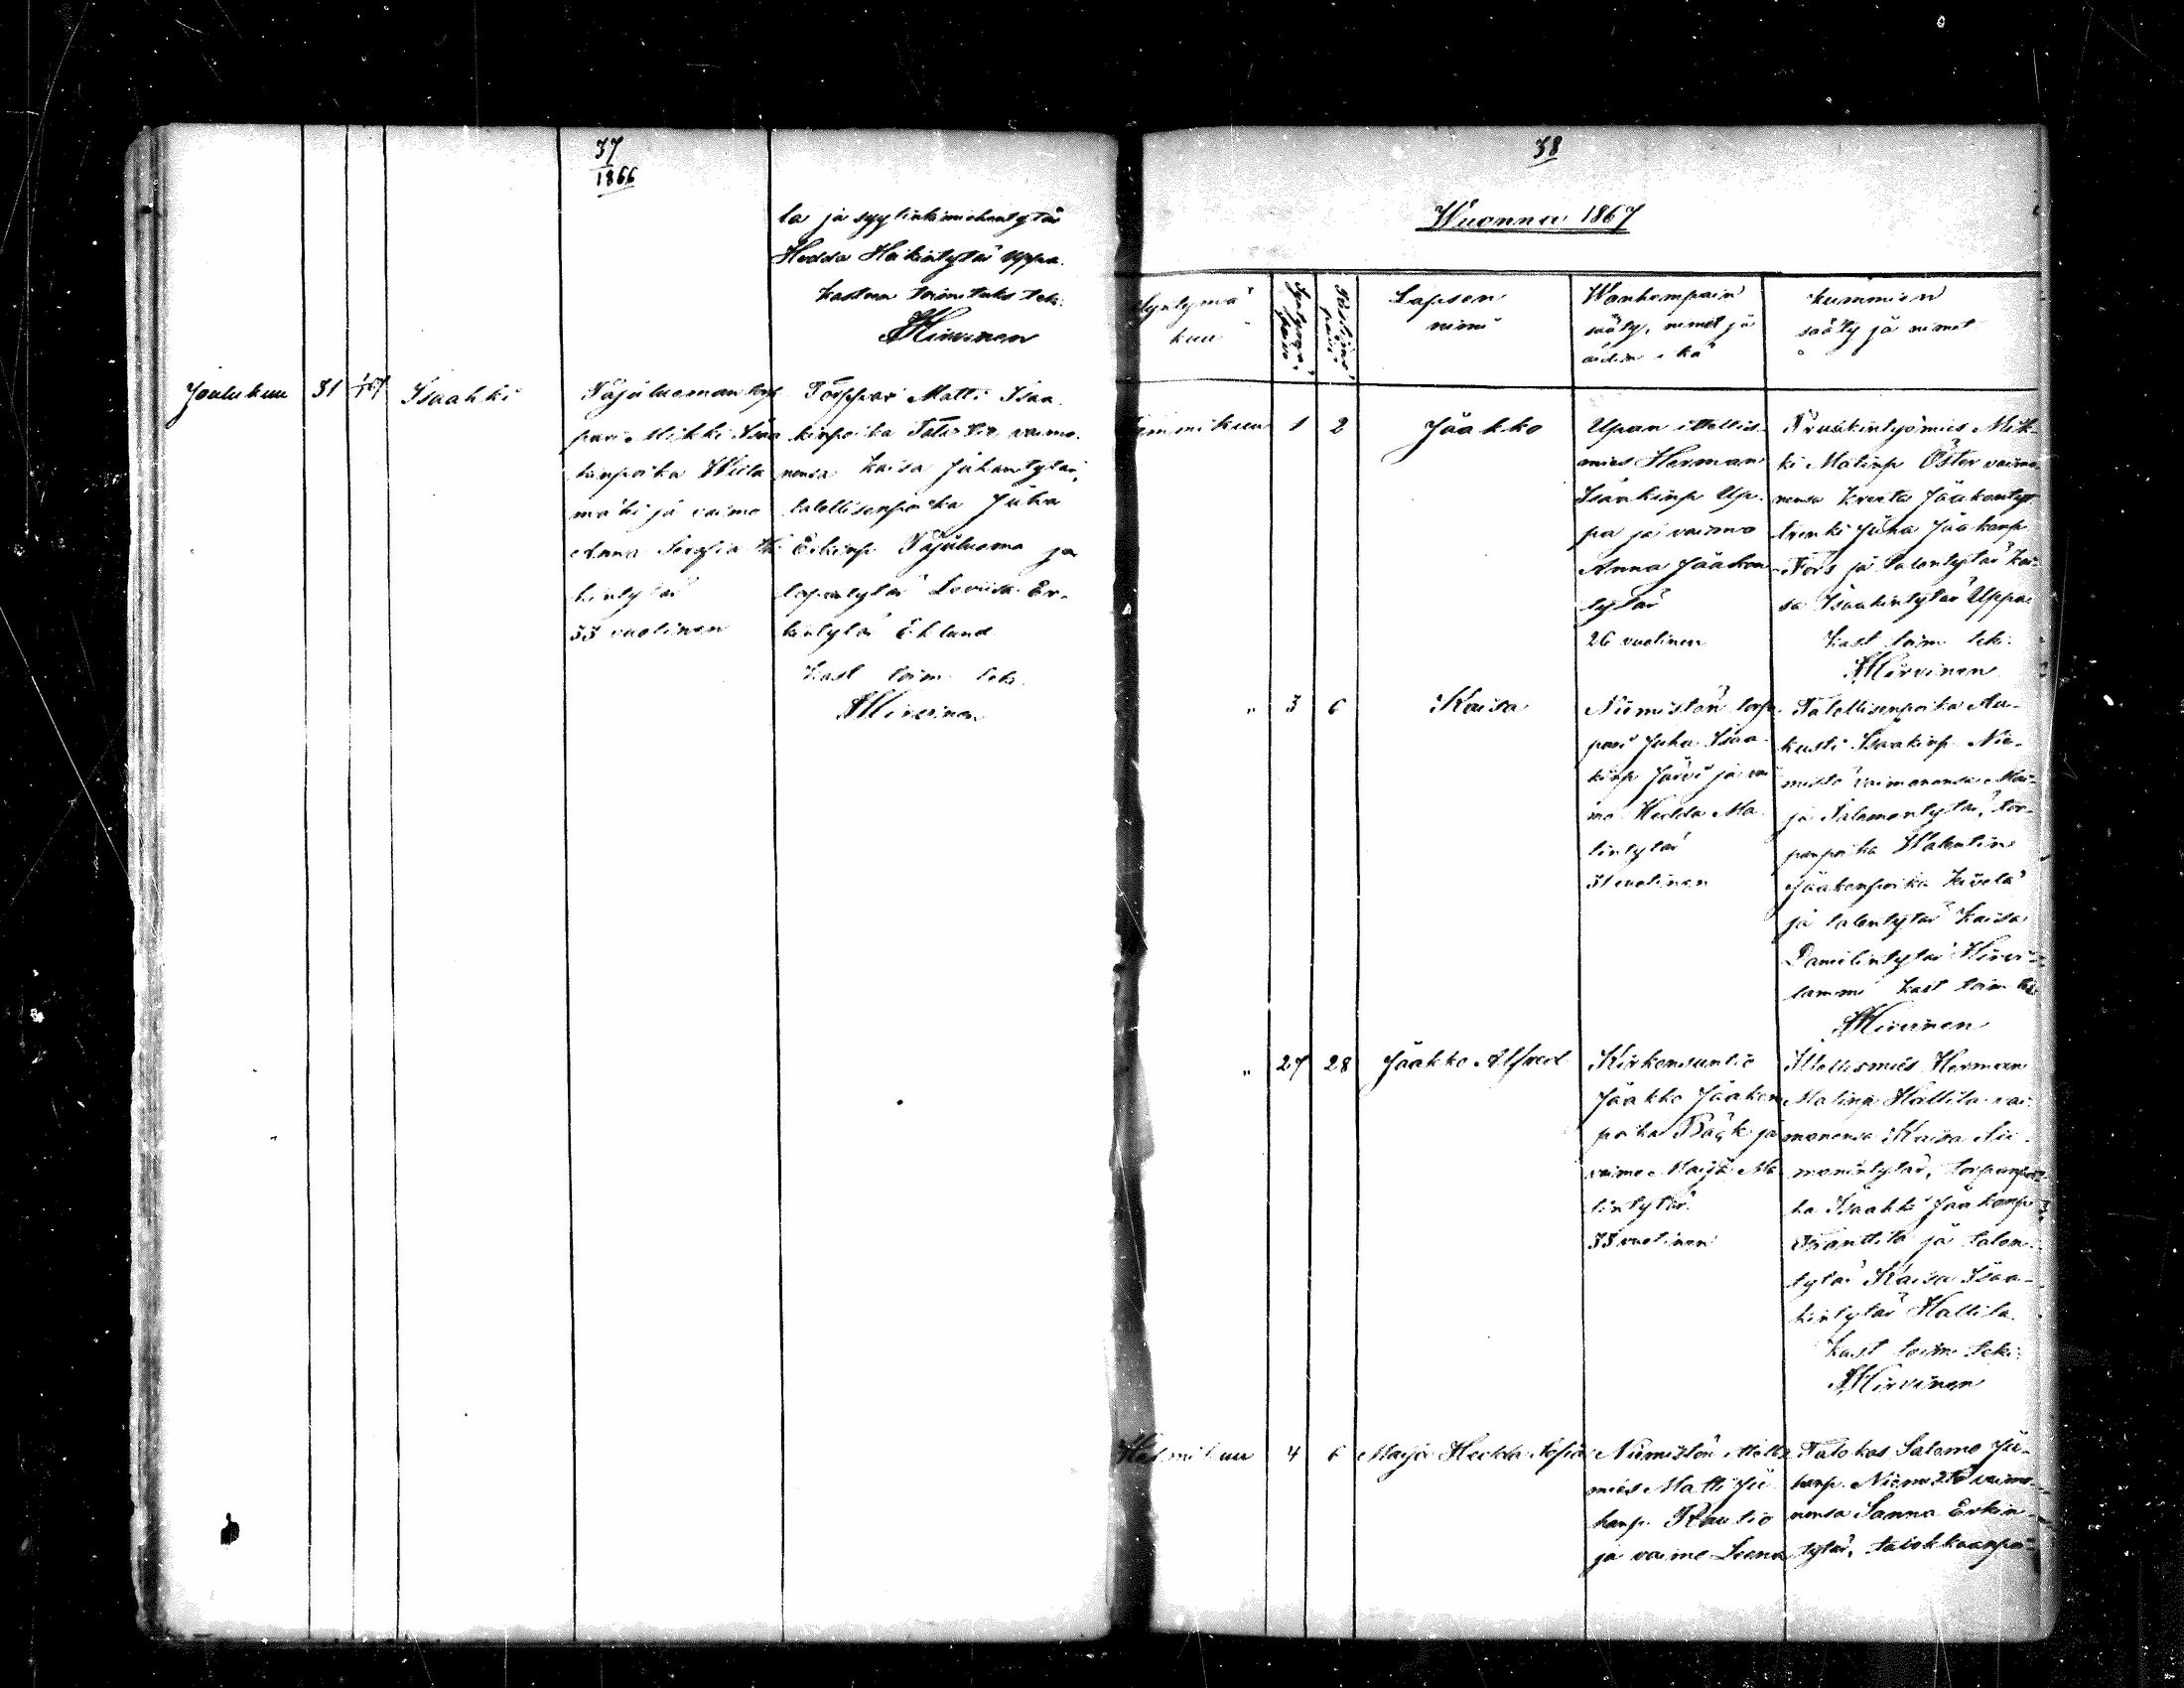 37
1866
la ja syytinkimiehentytär
Hedda Heikintytär Uppa.
Kasteen toimituks teki
Hirvinen
Joulukuu 31 1/1 67 Isaakki
Pajuluoman torp
pari Mikki Isaa
kinpoika Wiita
mäki ja vaimo
Anna Serafia
kintytär
33 vuotinen
Torppari Matti Isaa
kinpoika vaimo
nensa Kaisa Juhantytär,
talollisenpoika Juha
Erkinp Pajuluoma ja
Loviisa Er-
kintytär Eklund
Kast toim teki
Hirvinen
38
Wuonna 1867
Syntymä
kuu
Syntymä
päivä
Ristimä
päivä
Lapsen
nimi
Wanhempain
sääty, nimet ja
äidin ikä
Kummien
sääty ja nimet
Tammikuu 1 2 Jaakko
Upan itellis
mies Herman
Isaakinp Up-
pa ja vaimo
Anna Jaakon
tytär
26 vuotinen
Mik-
ki Matinp Öster vaimo
nensa Kreeta Jaakontyt
trenki Juha Jaakonp
Fors ja talontytär Kai
sa Isaakintytär Uppa
Kast toim teki
Hirvinen
" 3 6 Kaisa
Niemistön torp
pari Juha Isaa
kinp Järvi ja vai
mo Hedda Ma
tintytär
31 vuotinen
Talollisenpoika Au-
kusti Isaakinp Nie-
mistö vaimonensa Mai-
ja Salomontytär, tor-
panpoika Walentin
Jaakonpoika Kivelä
ja talontytär Kaisa
Danielintytär Hirvi-
lammi Kast toim teki
Hirvinen
" 27 28 Jaakko Alfred
Kirkonsuntio
Jaakko Jaakon
poika Bäck ja
vaimo Maija Ma
tintytär
33 vuotinen
Itellismies Herman
Matinp Hallila vai
monensa Kaisa Sii
monintytär, torpanpoi
ka Isaakki Jaakonp
Anttila ja talon
tytär Kaisa Isaa-
kintytär Hallila
Kast toim teki
Hirvinen
Helmikuu 4 6 Maija Hedda Sofia
Niemistön itellis
mies Matti Ju
hanp. Rautio
ja vaimo Leena
Talokas Salomo Ju-
hanp. Niemistö vaimo
nensa Sanna Erkin
tytär, talokkaanpoi-